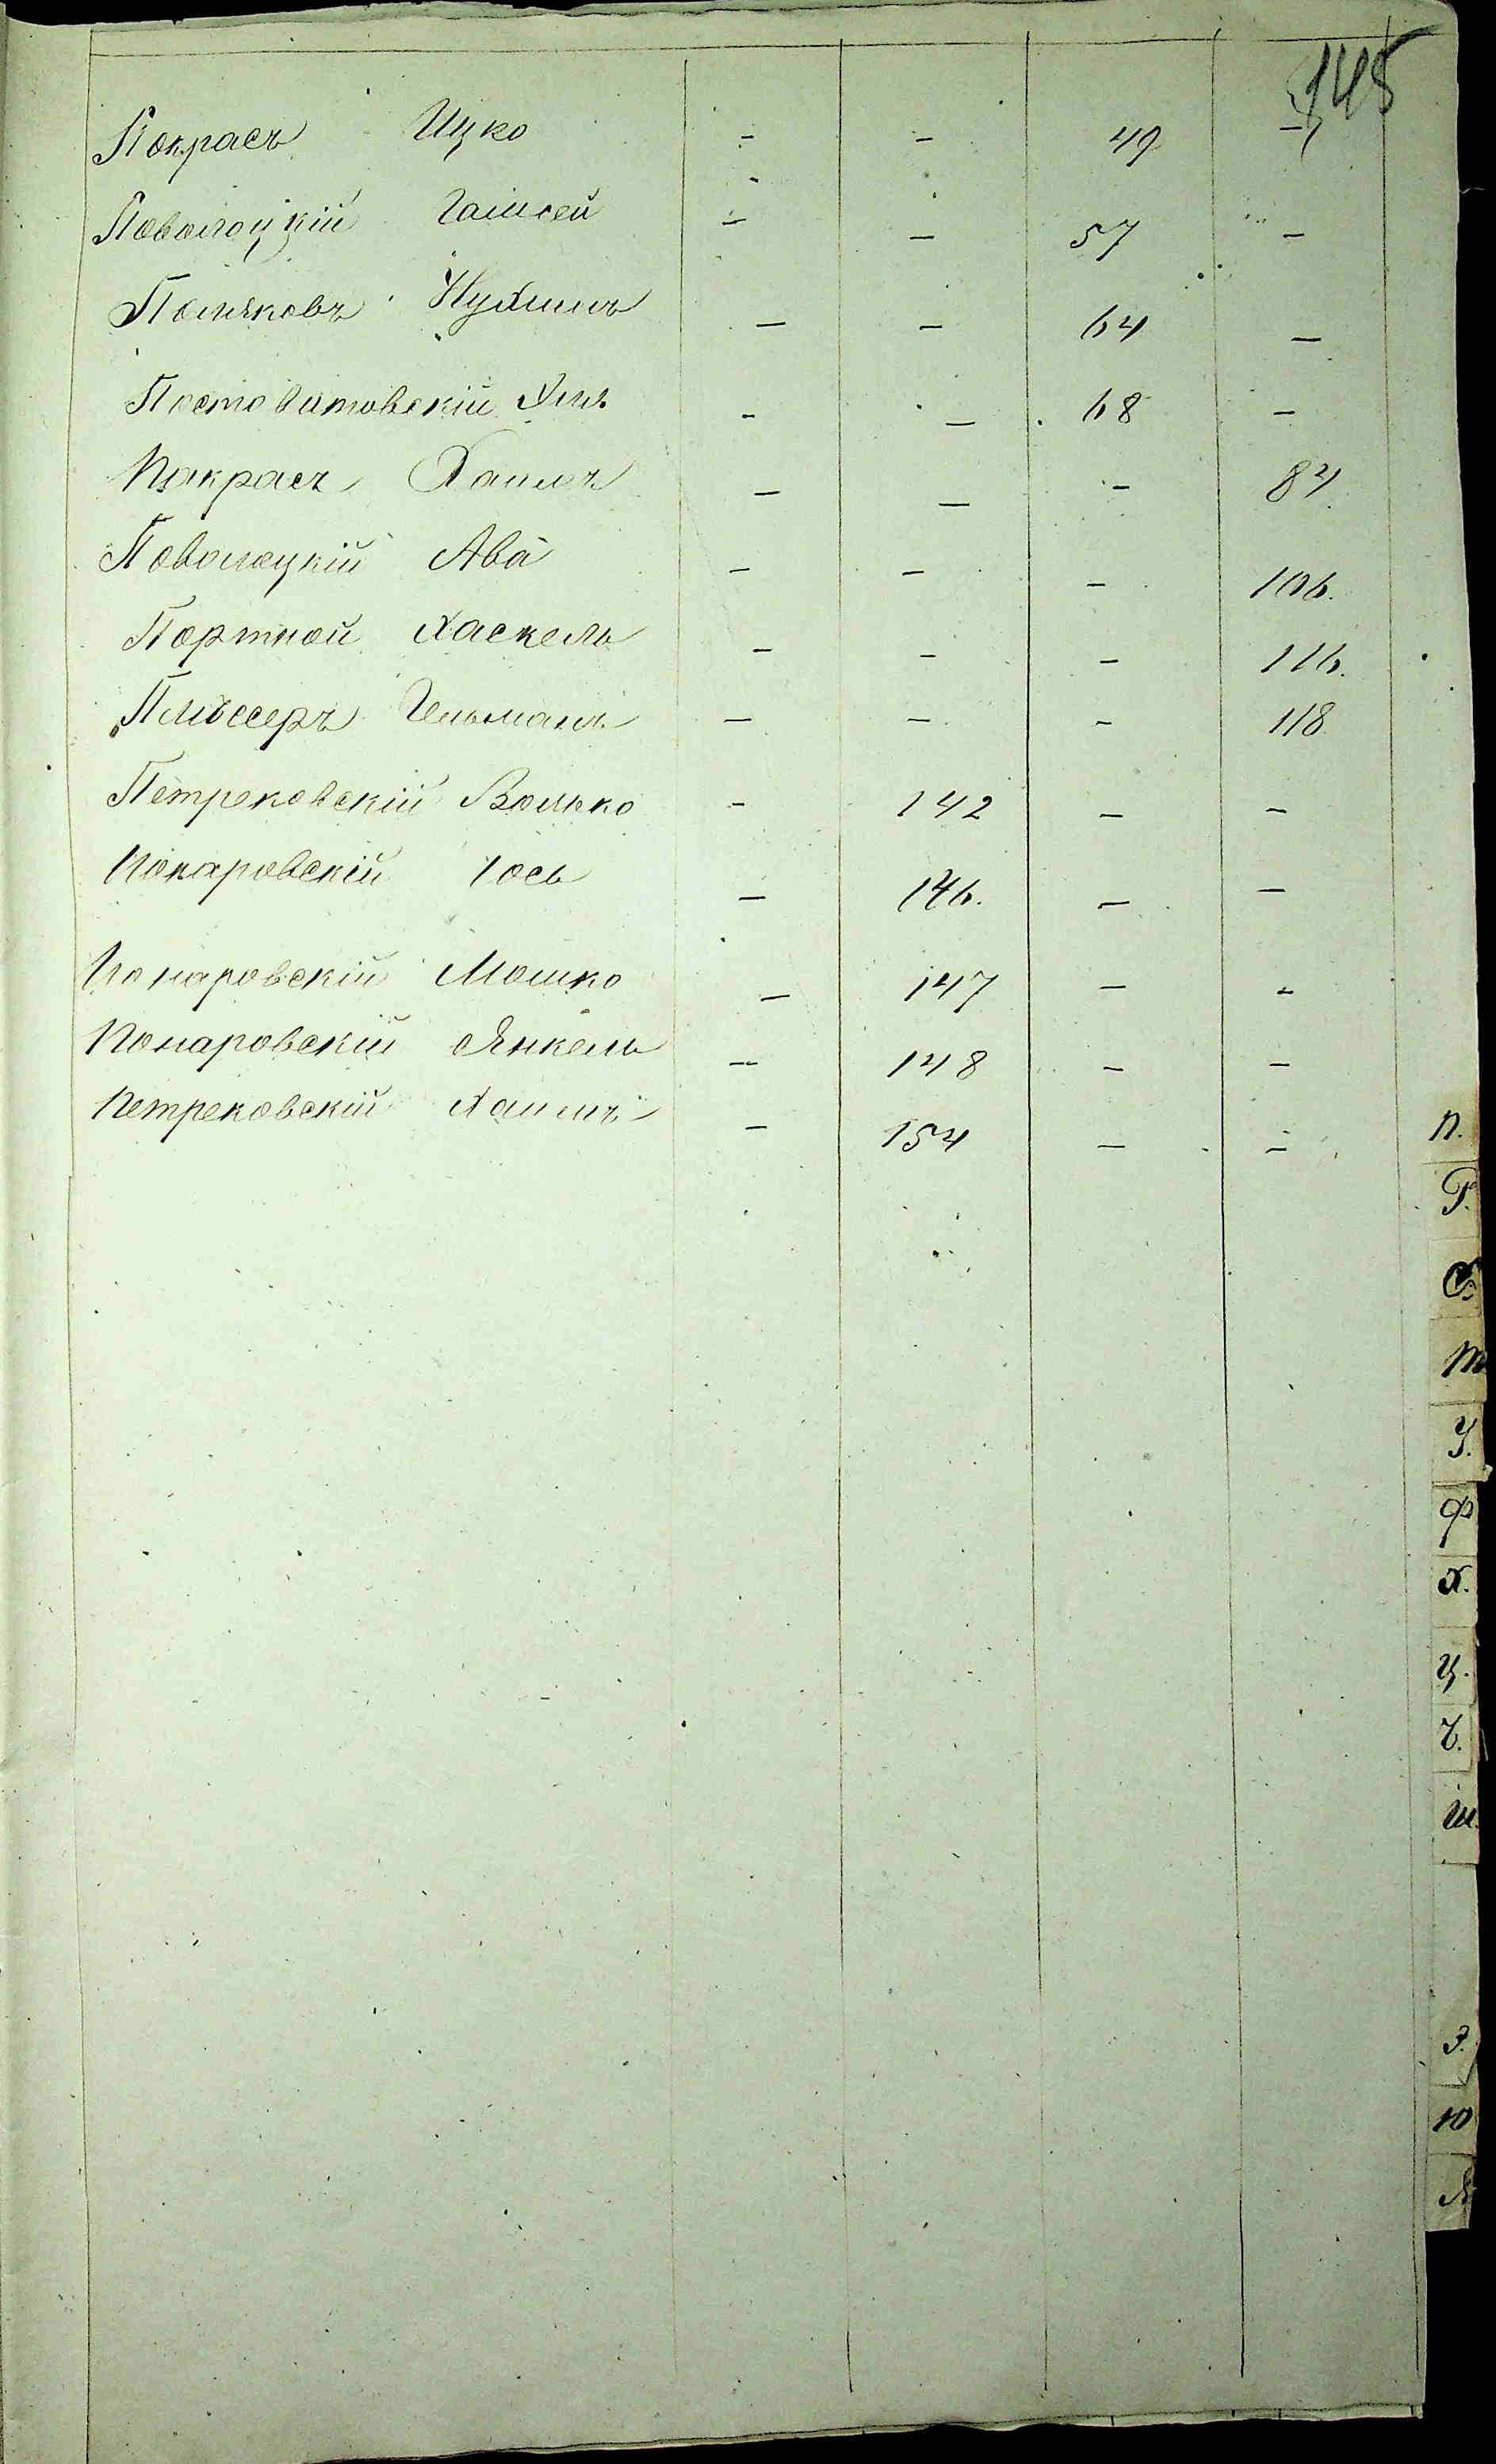 145
Покрасъ Ицко - - 49 -
Поволоцкій Гаисей - - 57 -
Поляковъ Нухимъ - - 64 -
Постоватовскій - - 68 -
Покрасъ Хаимъ - - - 84
Поволоцкій Ава - - - 106.
Портной Хаскель - - - 116.
Плѣссеръ Гельманъ - - - 118
Петрековскій Волько - 142 - -
Понаровскій Іось - 146. - -
Понаровскій Мошко - 147 - -
Понаровскій Янкель - 148 - -
Петрековскій Хаимъ - 154 - -
П.
Р.
С.
Т
У.
Ф
Х.
Ц.
Ч.
Ш.
Э.
Ю
Я